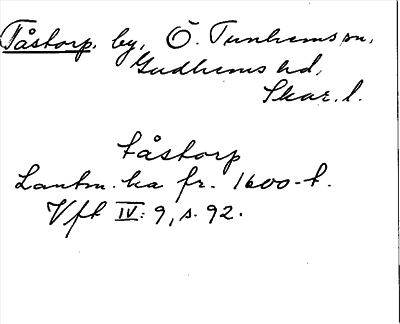 Tåstorp, by, Ö. Tunhems sn,
Gudhems hd,
Skar. l.
Tåstorp
Lantm. ka fr. 1600-t.
Vft IV: 9, s. 92.